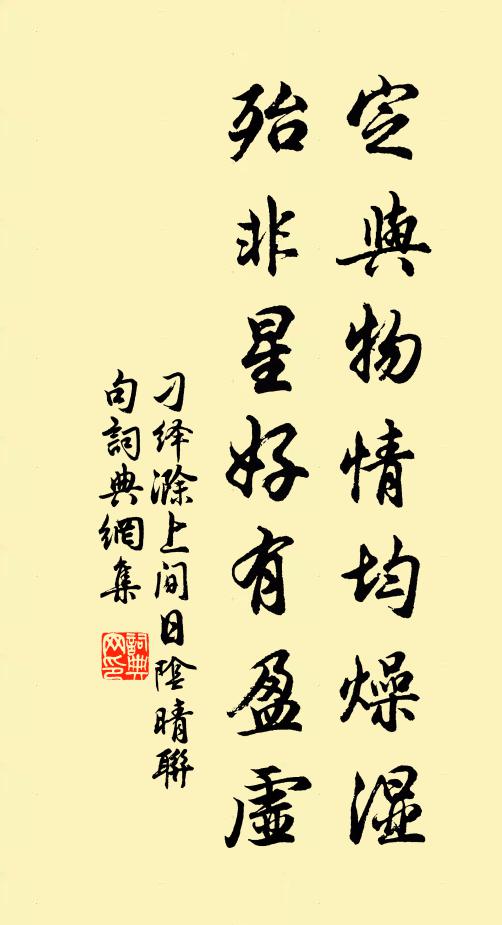 定與物情均燥湿
殆非星好有盈虛
刁绎滁上间日陰晴聯
句詞典網集
詞典网印